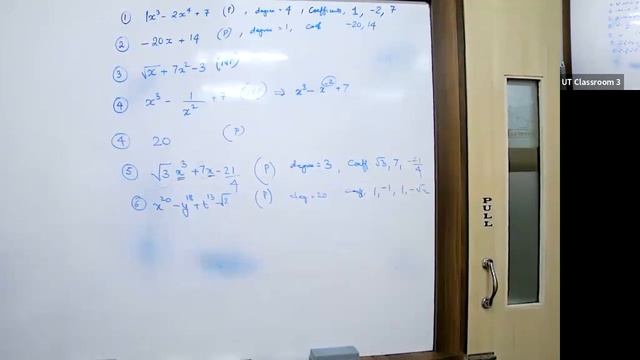 ① 1x³ - 2x⁴ + 7 (P) , degree = 4 , Coefficients, 1, -2, 7
② -20x + 14 (P) , degree = 1, Coeff -20, 14
③ √x + 7x² - 3 (N)
④ x³ - 1/x² + 7 ⇒ x³ - x⁻² + 7
④ 20 (P)
⑤ √3 x³ + 7x - 21/4 (P) degree = 3, Coeff √3, 7, -21/4
⑥ x²⁰ - y¹⁸ + t¹³ - √2 (P) deg = 20 coeff, 1, -1, 1, -√2
PULL
UT Classroom 3